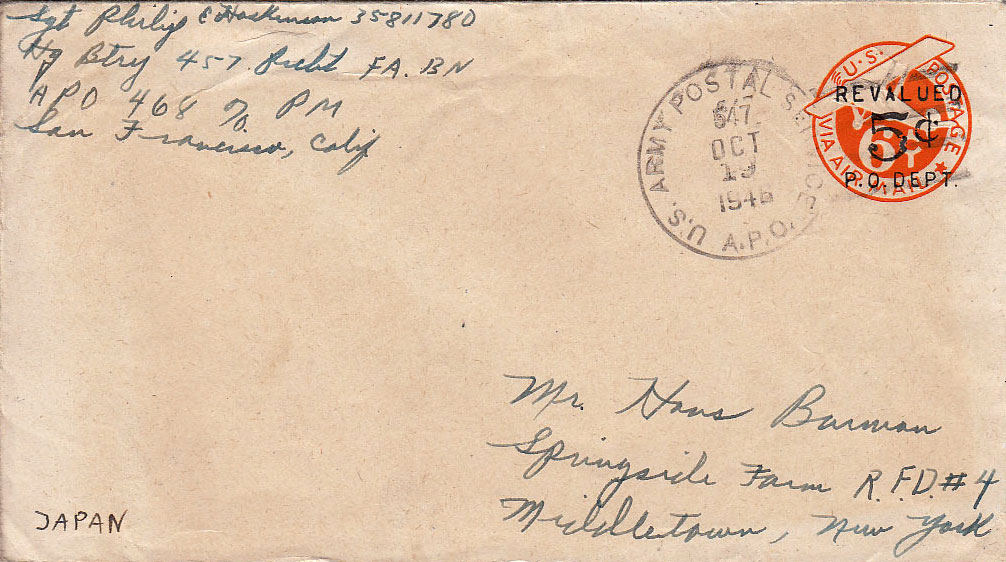 Sgt Philip E Hoskinson 35811780
Hq Btry 457 Prcht FA. BN
APO 468 c/o PM
San Francisco, Calif
U.S. ARMY POSTAL SERVICE
OCT
19
1946
A.P.O.
U.S. POSTAGE
REVALUED
5¢
6¢
P.O. DEPT.
VIA AIR MAIL
Mr. Hans Barman
Springside Farm R.F.D. # 4
Middletown, New York
JAPAN